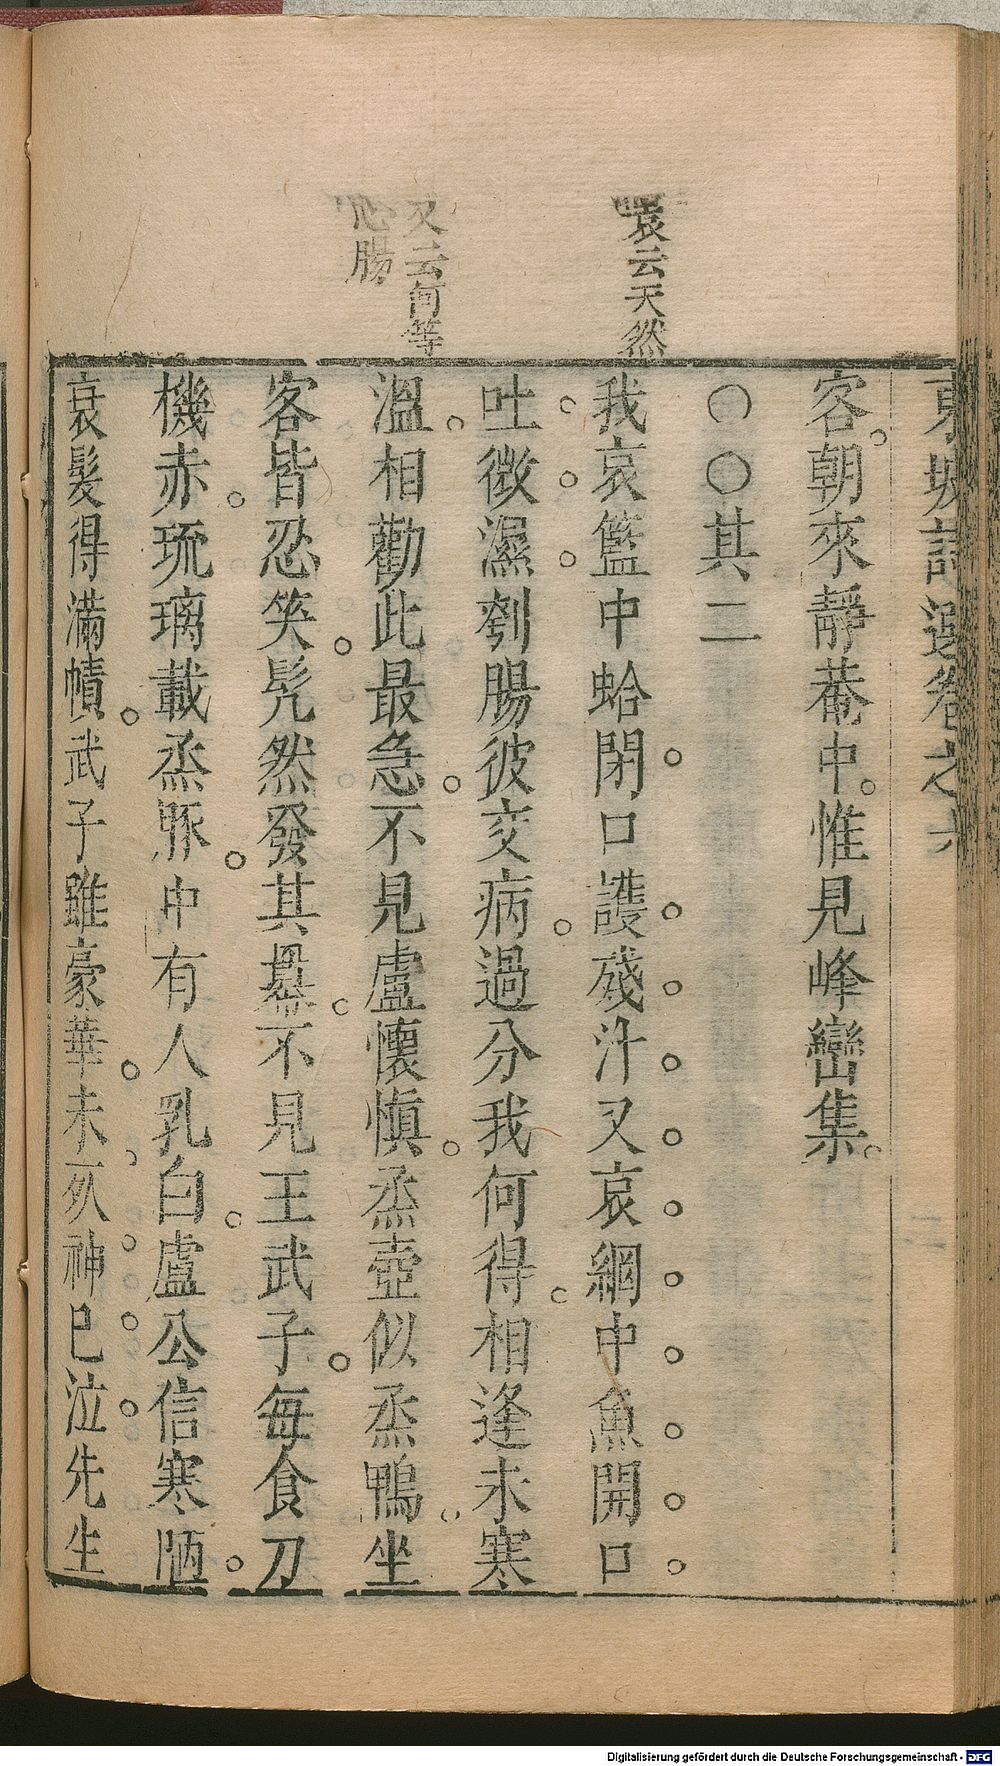 東坡詩選卷之六
客朝來靜菴中惟見峰巒集
○○其二
袁云天然
我哀籃中蛤閉口護殘汁又哀網中魚開口
吐微濕刳腸彼交病過分我何得相逢未寒
又云何等
心腸
溫相勸此最急不見盧懷慎烝壺似烝鴨坐
客皆忍笑髠然發其羃不見王武子每食刀
機赤琉璃載烝豚中有人乳白盧公信寒陋
衰髮得滿幘武子雖豪華未死神已泣先生
Digitalisierung gefördert durch die Deutsche Forschungsgemeinschaft - DFG